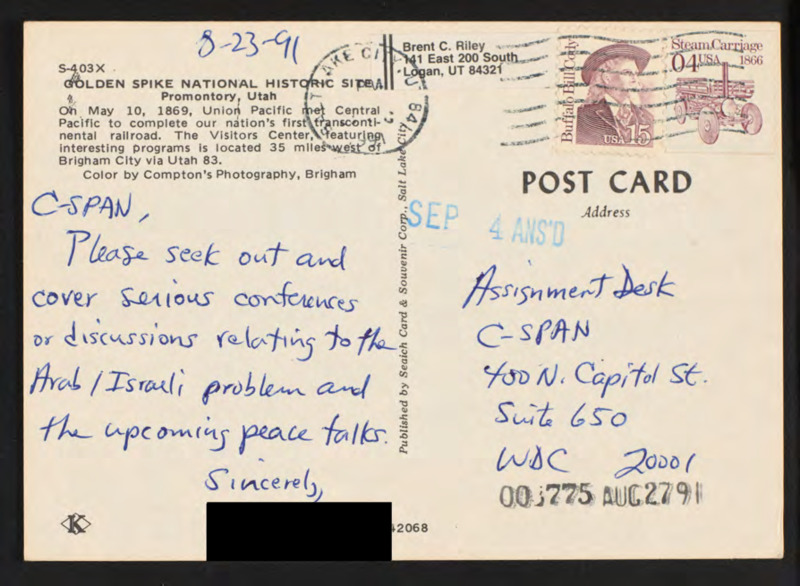 8-23-91
S-403X
GOLDEN SPIKE NATIONAL HISTORIC SITE
Promontory, Utah
On May 10, 1869, Union Pacific met Central
Pacific to complete our nation's first transconti-
nental railroad. The Visitors Center, featuring
interesting programs is located 35 miles west of
Brigham City via Utah 83.
Color by Compton's Photography, Brigham
C-SPAN,
Please seek out and
cover serious conferences
or discussions relating to the
Arab/Israeli problem and
the upcoming peace talks.
Sincerely,
K
42068
Published by Seaich Card & Souvenir Corp., Salt Lake City
Brent C. Riley
141 East 200 South
Logan, UT 84321
LAKE CITY
PM
841
Buffalo Bill Cody
USA 15
Steam Carriage
04 USA 1866
POST CARD
Address
SEP 4 ANS'D
Assignment Desk
C-SPAN
400 N. Capitol St.
Suite 650
WDC 20001
775 AUG 27 91